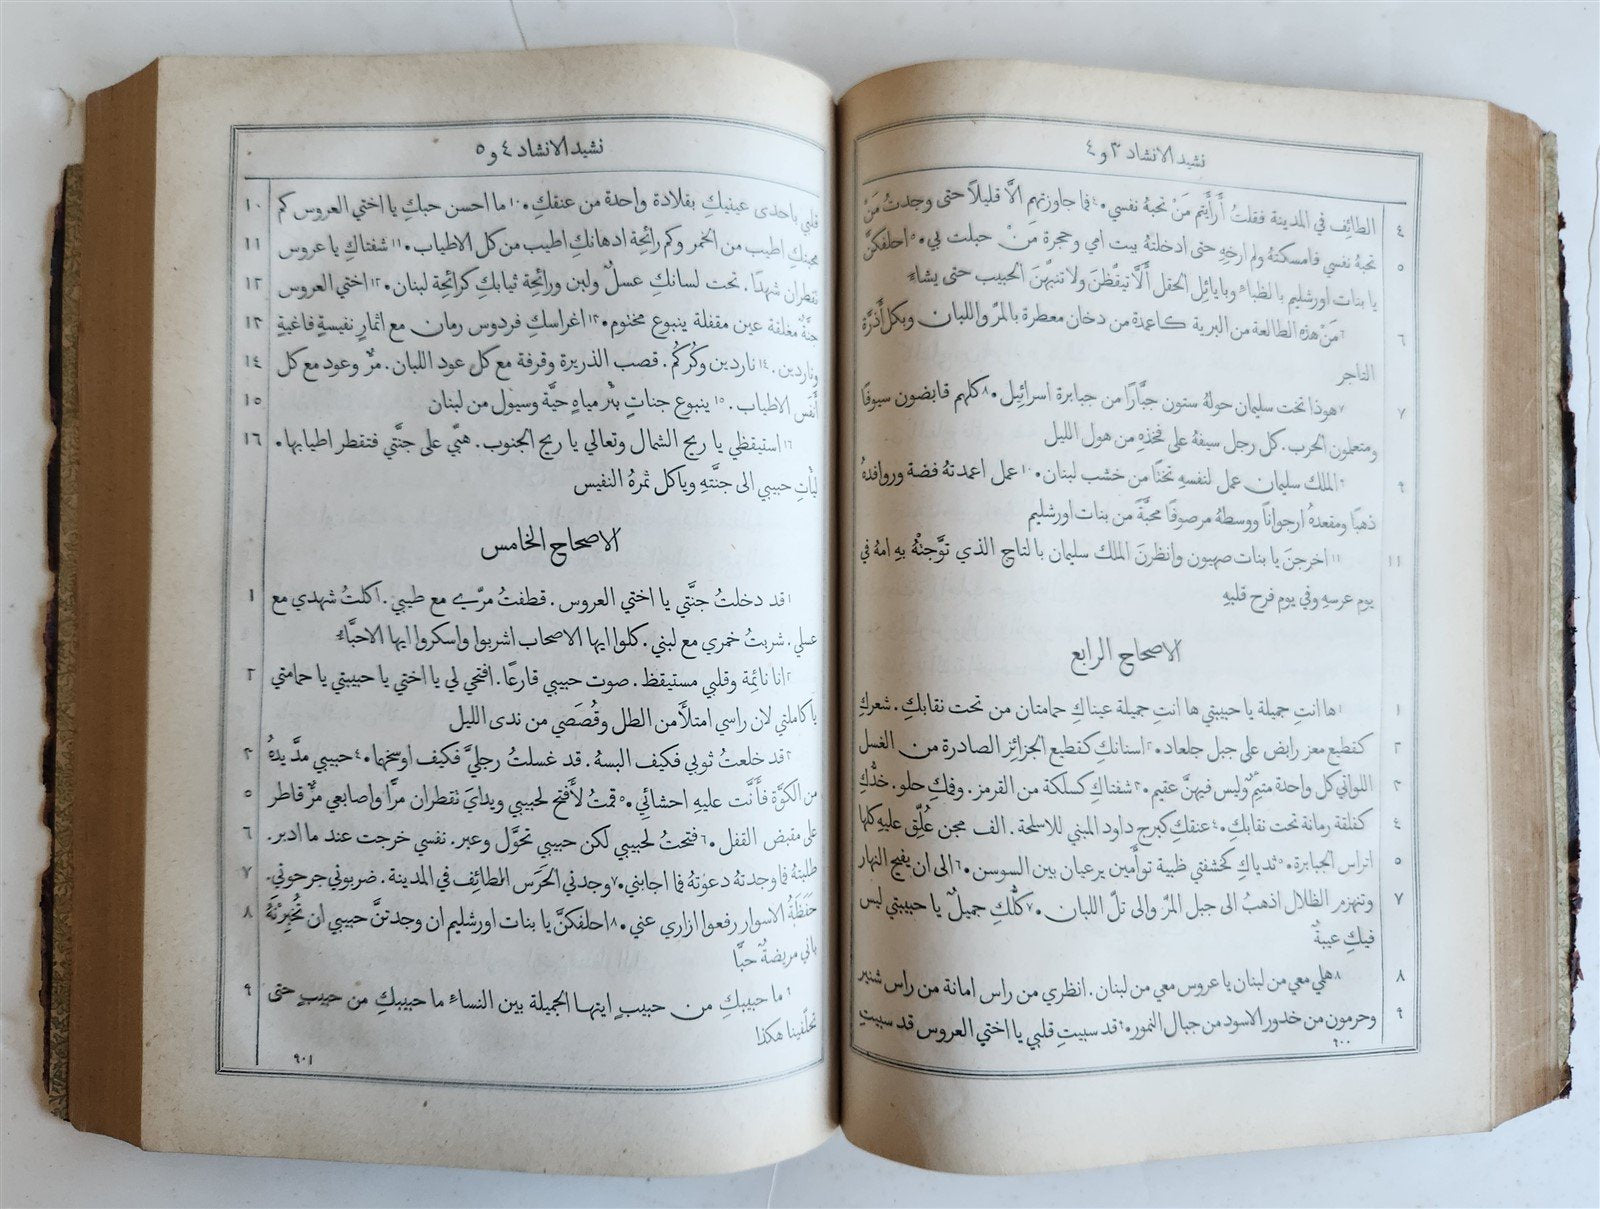 نشيد الانشاد ٣ و ٤
٤ الطائف في المدينة فقلتُ أَرأَيتم مَنْ تحبهُ نفسي ٤٠ فما جاوزتهم الَّا قليلاً حتى وجدتُ مَنْ
٥ تحبهُ نفسي فامسكتهُ ولم ارخهِ حتى ادخلتهُ بيت امي وحجرة مَنْ حبلت بي ٥٠ احلفكنَّ
يا بنات اورشليم بالظباءِ وبايائل الحقل أَلَّا تيقِّظنَ ولا تنبِّهنَ الحبيب حتى يشاءَ
٦ ٦مَنْ هذه الطالعة من البرية كاعمدة من دخان معطرة بالمرّ واللبان وبكل أَذرَّة
التاجر
٧ ٧هوذا تخت سليمان حولهُ ستون جبَّارًا من جبابرة اسرائيل ٨٠ كلهم قابضون سيوفًا
ومتعلمون الحرب. كل رجل سيفهُ على فخذهِ من هول الليل
٩ ٩الملك سليمان عمل لنفسهِ تختًا من خشب لبنان ١٠٠ عمل اعمدتهُ فضة وروافدهُ
ذهبًا ومقعدهُ ارجوانًا ووسطهُ مرصوفًا محبَّةً من بنات اورشليم
١١ ١١اخرجنَ يا بنات صهيون وانظرنَ الملك سليمان بالتاج الذي توَّجتْهُ بهِ امهُ في
يوم عرسهِ وفي يوم فرح قلبهِ
الاصحاح الرابع
١ ١ها انتِ جميلة يا حبيبتي ها انتِ جميلة عيناكِ حمامتان من تحت نقابكِ. شعركِ
٢ كقطيع معز رابض على جبل جلعاد ٢٠ اسنانكِ كقطيع الجزائز الصادرة من الغسل
٣ اللواتي كل واحدة متئِمٌ وليس فيهنَّ عقيم ٣٠ شفتاكِ كسلكة من القرمز. وفمكِ حلو. خدُّكِ
٤ كفلقة رمانة تحت نقابك ٤٠ عنقكِ كبرج داود المبني للاسلحة. الف مجن عُلِّق عليهِ كلها
٥ اتراس الجبابرة ٥٠ ثدياكِ كخشفتي ظبية توأَمين يرعيان بين السوسن ٦٠ الى ان يفيح النهار
٧ وتنهزم الظلال اذهبُ الى جبل المرّ والى تلّ اللبان ٧٠ كلُّكِ جميلٌ يا حبيبتي ليس
فيكِ عيبةٌ
٨ ٨هلمي معي من لبنان يا عروس معي من لبنان. انظري من راس امانة من راس شنير
٩ وحرمون من خدور الاسود من جبال النمور ٩٠ قد سبيتِ قلبي يا اختي العروس قد سبيتِ
٩٠٠
نشيد الانشاد ٤ و ٥
١٠ قلبي باحدى عينيكِ بقلادة واحدة من عنقكِ ١٠٠ ما احسن حبكِ يا اختي العروس كم
١١ محبتكِ اطيب من الخمر وكم رائحة ادهانكِ اطيب من كل الاطياب ١١٠ شفتاكِ يا عروس
١٢ تقطران شهدًا. تحت لسانكِ عسلٌ ولبن ورائحة ثيابكِ كرائحة لبنان ١٢٠ اختي العروس
١٣ جنَّةٌ مغلقة عين مقفلة ينبوع مختوم ١٣٠ اغراسكِ فردوس رمان مع اثمارٍ نفيسةٍ فاغيةٍ
١٤ وناردين. ١٤ ناردين وكُركُم. قصب الذريرة وقرفة مع كل عود اللبان. مرٌّ وعود مع كل
١٥ أَنفَس الاطياب. ١٥ ينبوع جناتٍ بئْر مياهٍ حيَّة وسيول من لبنان
١٦ ١٦استيقظي يا ريح الشمال وتعالي يا ريح الجنوب. هبّي على جنَّتي فتقطر اطيابها.
ليأْتِ حبيبي الى جنَّتهِ وياكل ثمرهُ النفيس
الاصحاح الخامس
١ ١قد دخلتُ جنَّتي يا اختي العروس. قطفتُ مرّي مع طيبي. اكلتُ شهدي مع
عسلي. شربتُ خمري مع لبني. كلوا ايها الاصحاب اشربوا واسكروا ايها الاحبَّاءُ
٢ ٢انا نائمة وقلبي مستيقظ. صوت حبيبي قارعًا. افتحي لي يا اختي يا حبيبتي يا حمامتي
يا كاملتي لان راسي امتلأَ من الطل وقُصَصي من ندى الليل
٣ ٣قد خلعتُ ثوبي فكيف البسهُ. قد غسلتُ رجليَّ فكيف اوسخهما ٤٠ حبيبي مدَّ يدهُ
٥ من الكوَّة فأَنَّت عليهِ احشائي ٥٠ قمتُ لأَفتح لحبيبي ويدايَ تقطران مرًّا واصابعي مرٌّ قاطر
٦ على مقبض القفل ٦٠ فتحتُ لحبيبي لكن حبيبي تحوَّل وعبر. نفسي خرجت عند ما ادبر.
٧ طلبتهُ فما وجدتهُ دعوتهُ فما اجابني ٧٠ وجدني الحَرَس الطائف في المدينة. ضربوني جرحوني.
٨ حَفَظَةُ الاسوار رفعوا ازاري عني ٨٠ احلفكنَّ يا بنات اورشليم ان وجدتنَّ حبيبي ان تُخبِرْنَهُ
باني مريضةٌ حبًّا
٩ ٩ما حبيبكِ من حبيبٍ ايتها الجميلة بين النساءِ ما حبيبكِ من حبيبٍ حتى
تحلّفينا هكذا
٩٠١